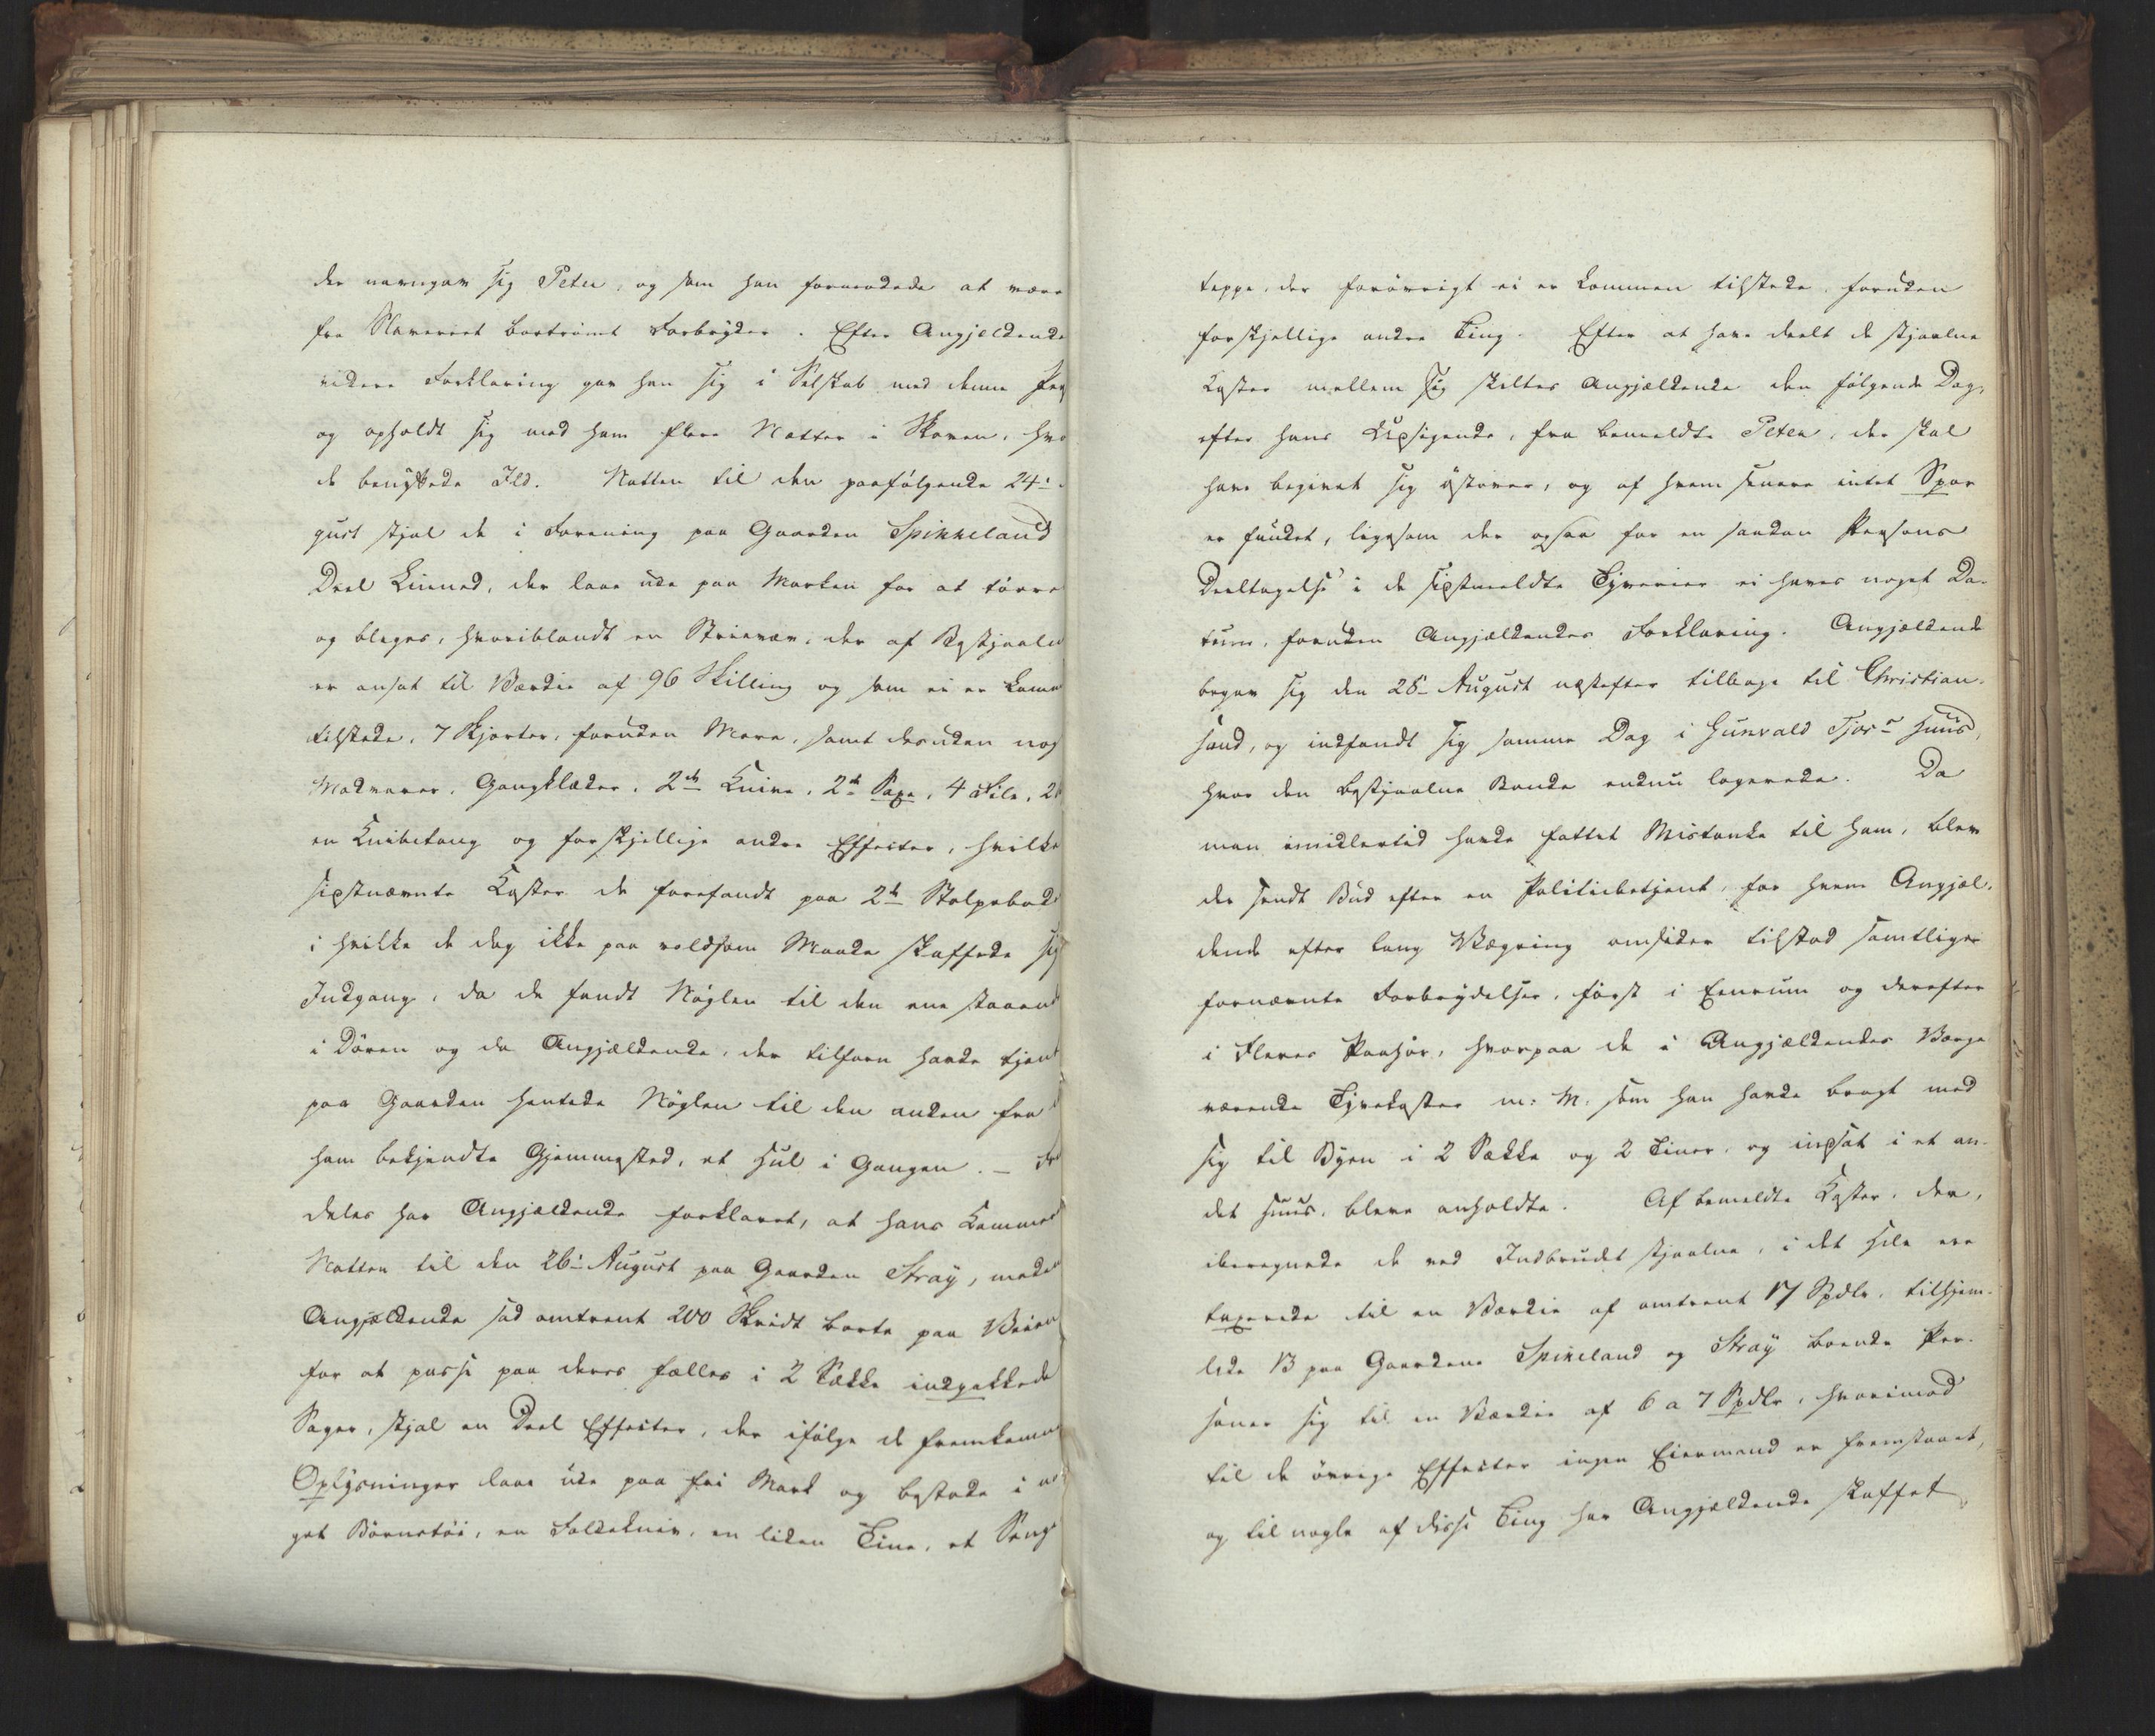 der navngav sig Peter, og som han formodede at være
fra Slaveriet bortrømt Forbryder. Efter Angjeldende
videre Forklaring gav han sig i Selskab med denne Per
og opholdt sig med ham flere Nætter i Skoven, hvo
de benyttede Ild. Natten til den paafølgende 24.
gust stjal de i Forening paa Gaarden Spikkeland
Deel Linned, der laae ude paa Marken for at tørre
og bleges, hvoriblandt en Strievæv, der af Bestjaalne
er ansat til Værdie af 96 Skilling og som ei er komm
tilstede, 7 Skjorter, foruden Mere, samt desuden nog
Madvarer, Gangklæder, 2de Knive, 2de Saxe, 4 File, 2
en Knibetang og forskjellige andre Effecter, hvilke
sidstnævnte Koster de forefandt paa 2de Stolpebode
i hvilke de dog ikke paa voldsom Maade skaffede sig
Indgang, da de fandt Nøglen til den ene staaend
i Døren og da Angjældende, der tilforn havde tjent
paa Gaarden hentede Nøglen til den anden fra
ham bekjendte Gjemmested, et Hul i Gangen. –
deles har Angjældende forklaret, at hans Kammer
Natten til den 26. August paa Gaarden Stray, meden
Angjældende sad omtrent 200 Skridt borte paa Veien
for at passe paa deres fælles i 2 Sække indpakkede
Sager, stjal en Deel Effecter, der ifølge de fremkomne
Oplysninger laae ude paa fri Mark og bestode i no
get Børnetøi, en Foldekniv, en liden Tine, et Senge
teppe, der forøvrigt ei er kommen tilstede, foruden
forskjellige andre Ting. Efter at have deelt de stjaalne
Koster mellem sig skiltes Angjældende den følgende Dag,
efter hans Udsigende, fra bemeldte Peter, der skal
have begivet sig østover, og af hvem senere intet Spor
er fundet, ligesom der ogsaa for en saadan Persons
Deeltagelse i de sidstmeldte Tyverier ei haves noget Da-
tum, foruden Angjældendes Forklaring. Angjældende
begav sig den 28. August næstefter tilbage til Christian-
sand, og indfandt sig samme Dag i Gunvald Tjos's Huus,
hvor den bestjaalne Bonde endnu logerede. Da
man imidlertid havde fattet Mistanke til ham, blev
der sendt Bud efter en Politiebetjent, for hvem Angjæl-
dende efter lang Vægring omsider tilstod samtlige
fornævnte Forbrydelser, først i Eenrum og derefter
i Fleres Paahør, hvorpaa de i Angjældendes Værge
værende Tyvekoster m: M. som han havde bragt med
sig til Byen i 2 Sække og 2 Tiner, og indsat i et an-
det Huus, bleve anholdte. Af bemeldte Koster, der,
iberegnede de ved Indbrudet stjaalne, i det Hele ere
taxerede til en Værdie af omtrent 17 Spdlr. tilhjem-
lede 13 paa Gaardene Spikeland og Stray boende Per-
soner sig til en Værdie af 6 a 7 Spdlr, hvorimod
til de øvrige Effecter ingen Eiermand er fremstaaet,
og til nogle af disse Ting har Angjældende skaffet